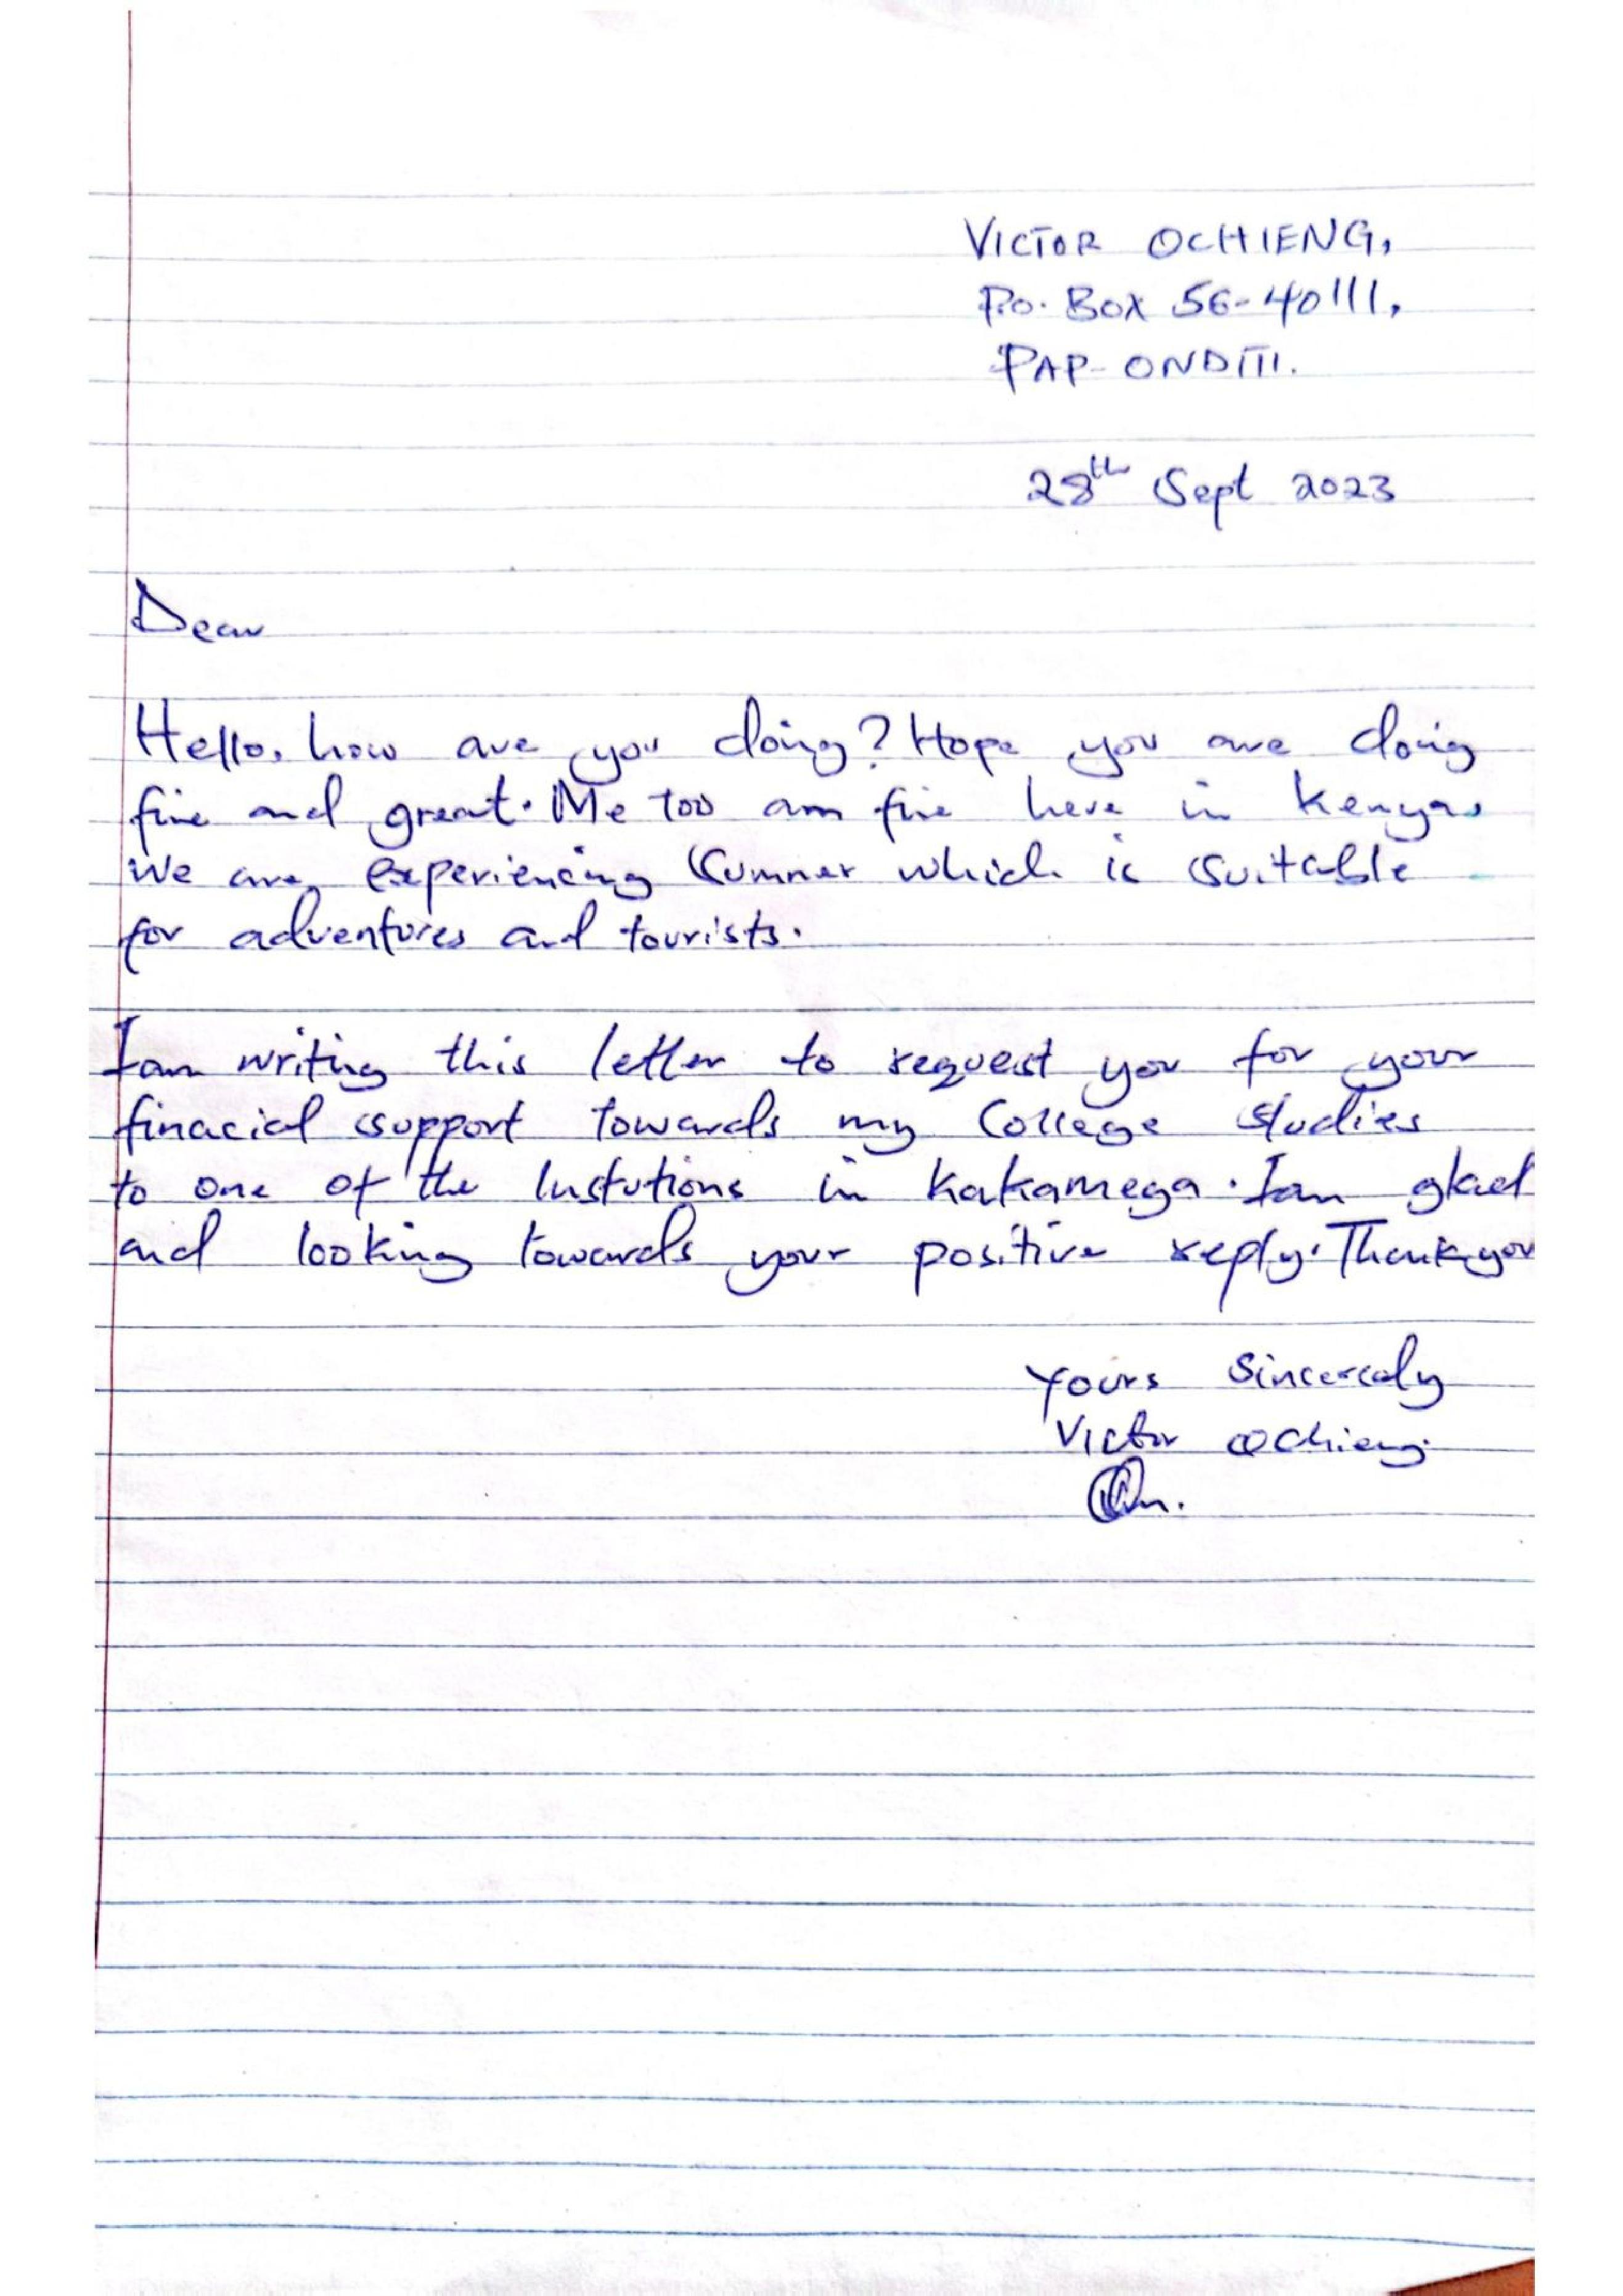 VICTOR OCHIENG,
P.o. Box 56-40111,
PAP-ONDITI.
28th Sept 2023
Dear
Hello, how are you doing? Hope you are doing
fine and great. Me too am fine here in Kenya,
We are experiencing Summer which is suitable
for adventures and tourists.
I am writing this letter to request you for your
finacial support towards my College studies
to one of the Instutions in Kakamega. I am glad
and looking towards your positive reply. Thank you
Yours Sincerely
Victor Ochieng.